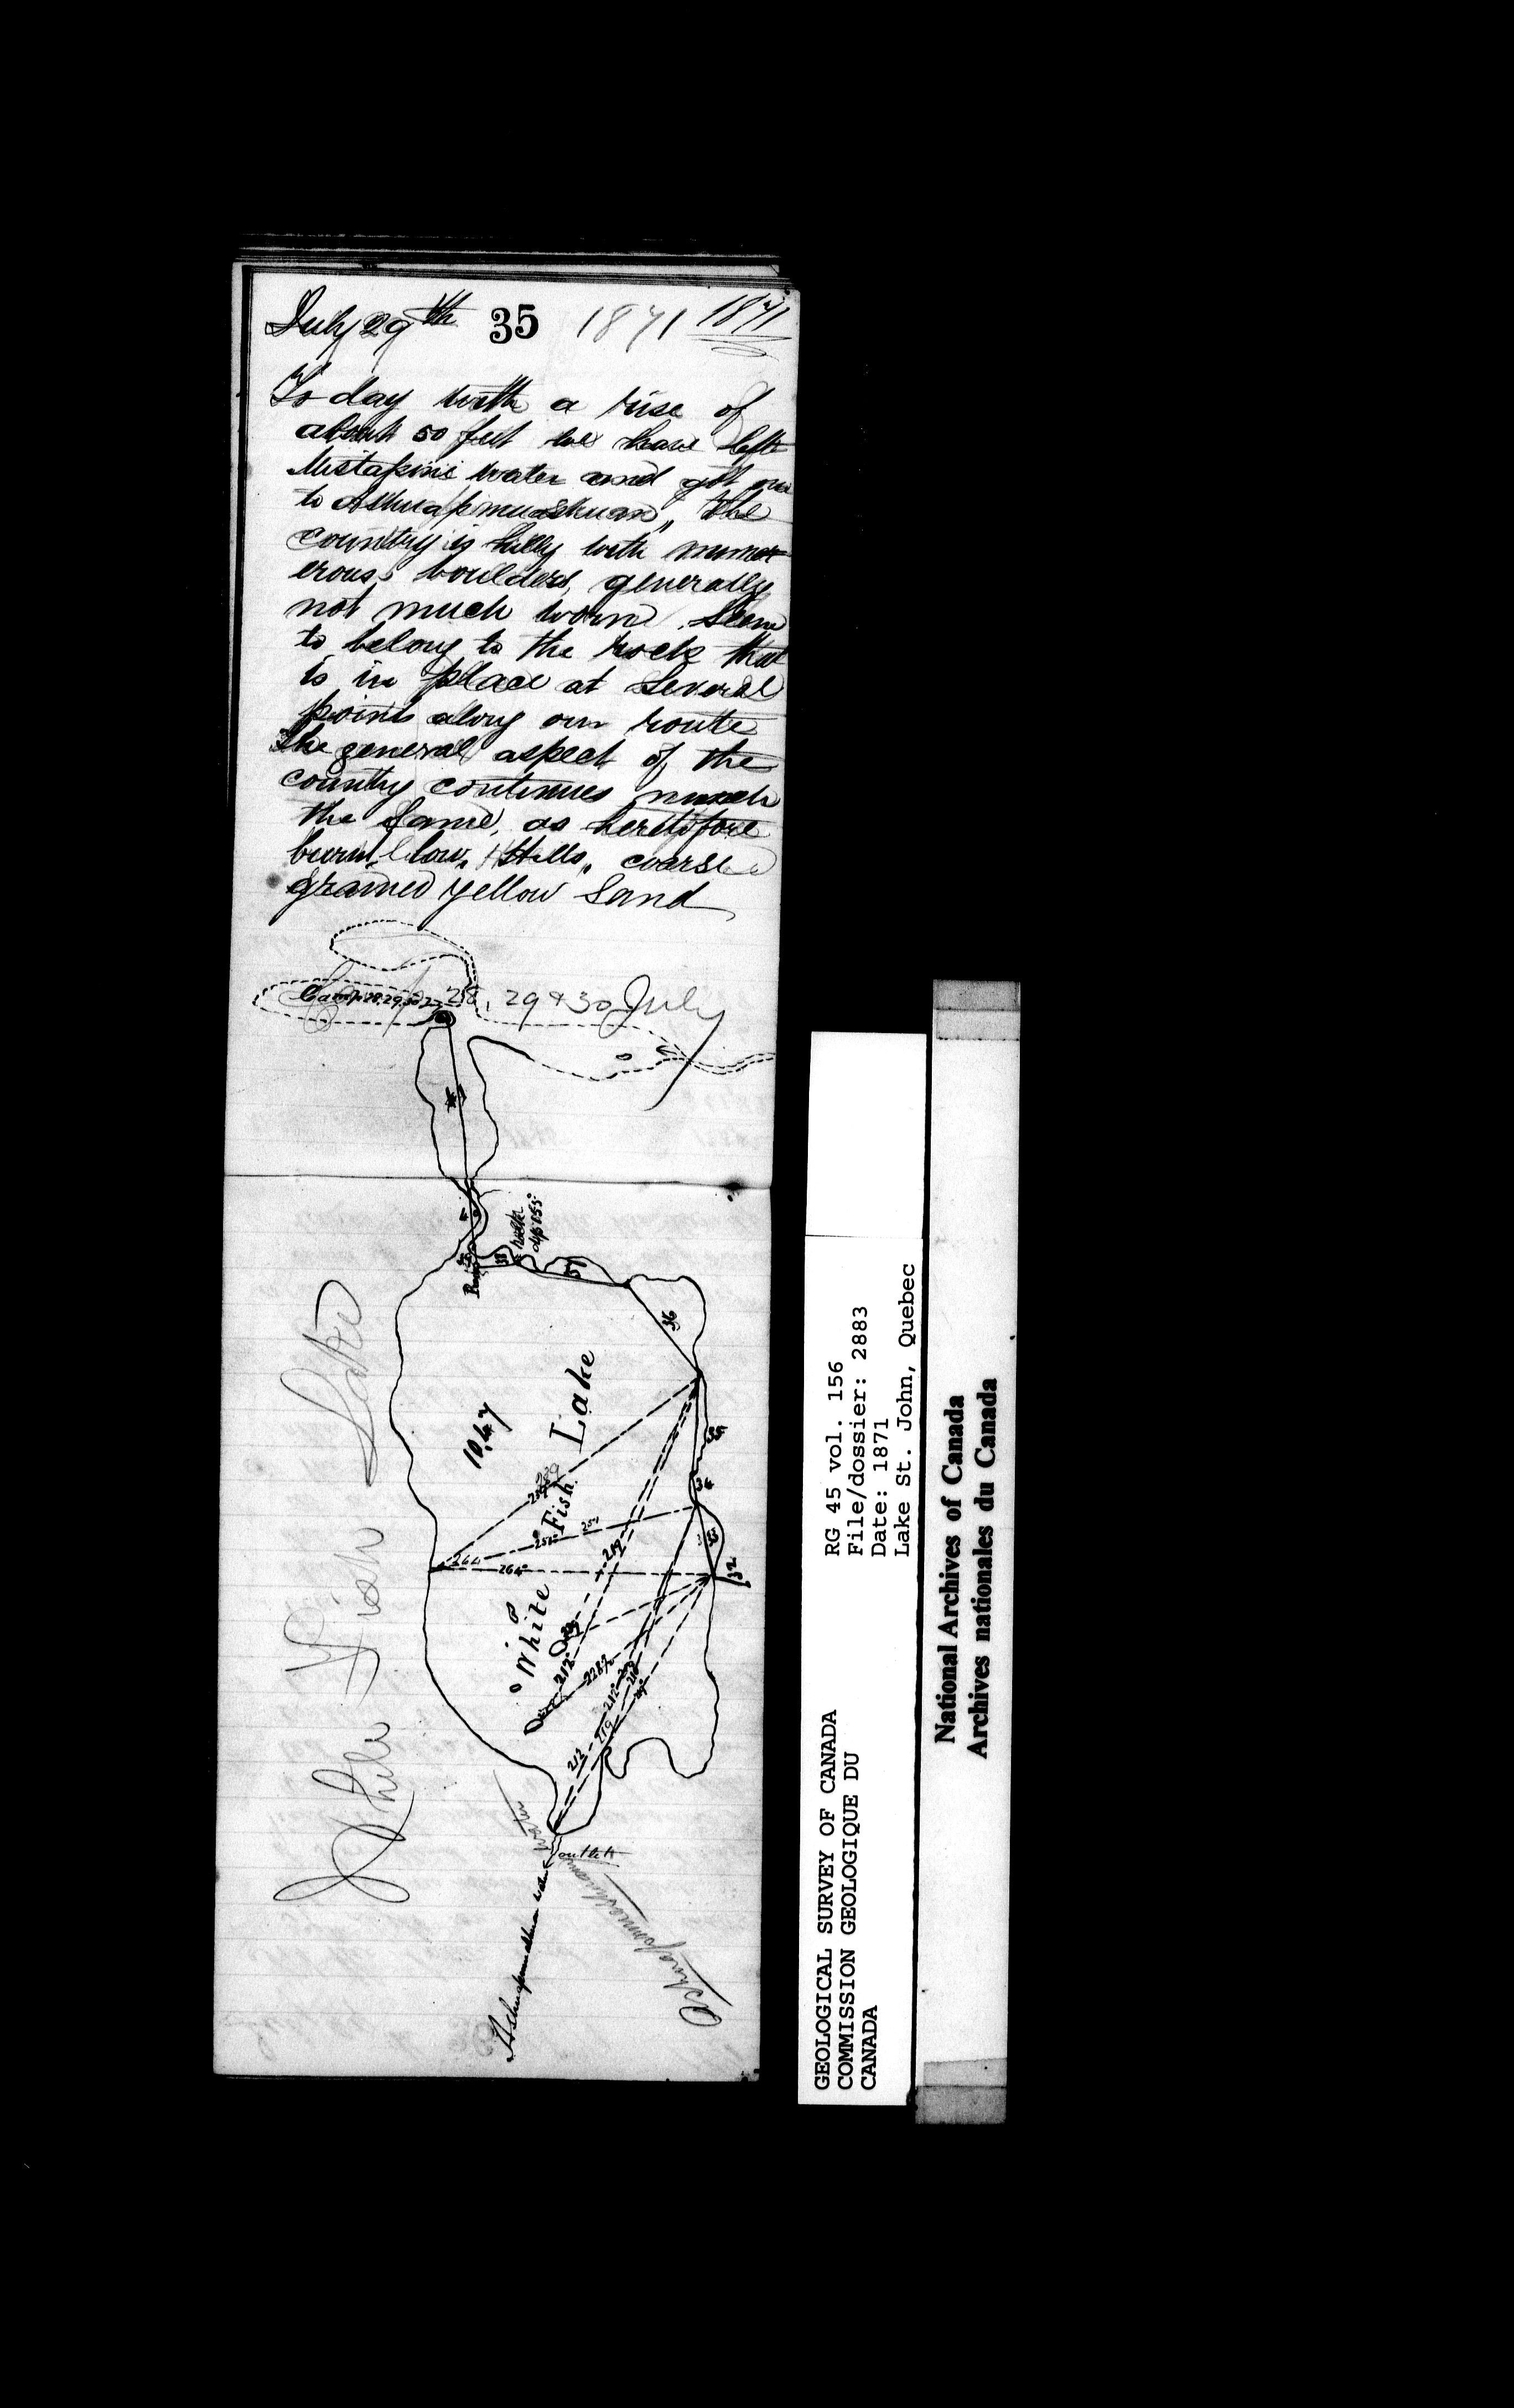 July 29th 35 1871 1871
To day with a rise of
about 50 feet we have left
Mistapinis water and got on
to Ashuapmuashuan,, The
country is hilly with num
erous boulders, generally
not much worn, Seem
to belong to the rock that
is in place at several
points along our route
The general aspect of the
country continues much
the same, as heretofore
burnt, low, Hills,, coarse
grained yellow Sand
Camp 28, 29, 30
28, 29 & 30 July
Rock
dip 155°
38
37
36
Lake
10.47
35
289
34
Fish
251°
251
33
264
264°
219
32
White
212°
228½
212°
219
212
219
White Fish Lake
water
outlet
Ashuapmuashuan water
Ashuapmuashuan
RG 45 vol. 156
File/dossier: 2883
Date: 1871
Lake St. John, Quebec
GEOLOGICAL SURVEY OF CANADA
COMMISSION GEOLOGIQUE DU
CANADA
National Archives of Canada
Archives nationales du Canada